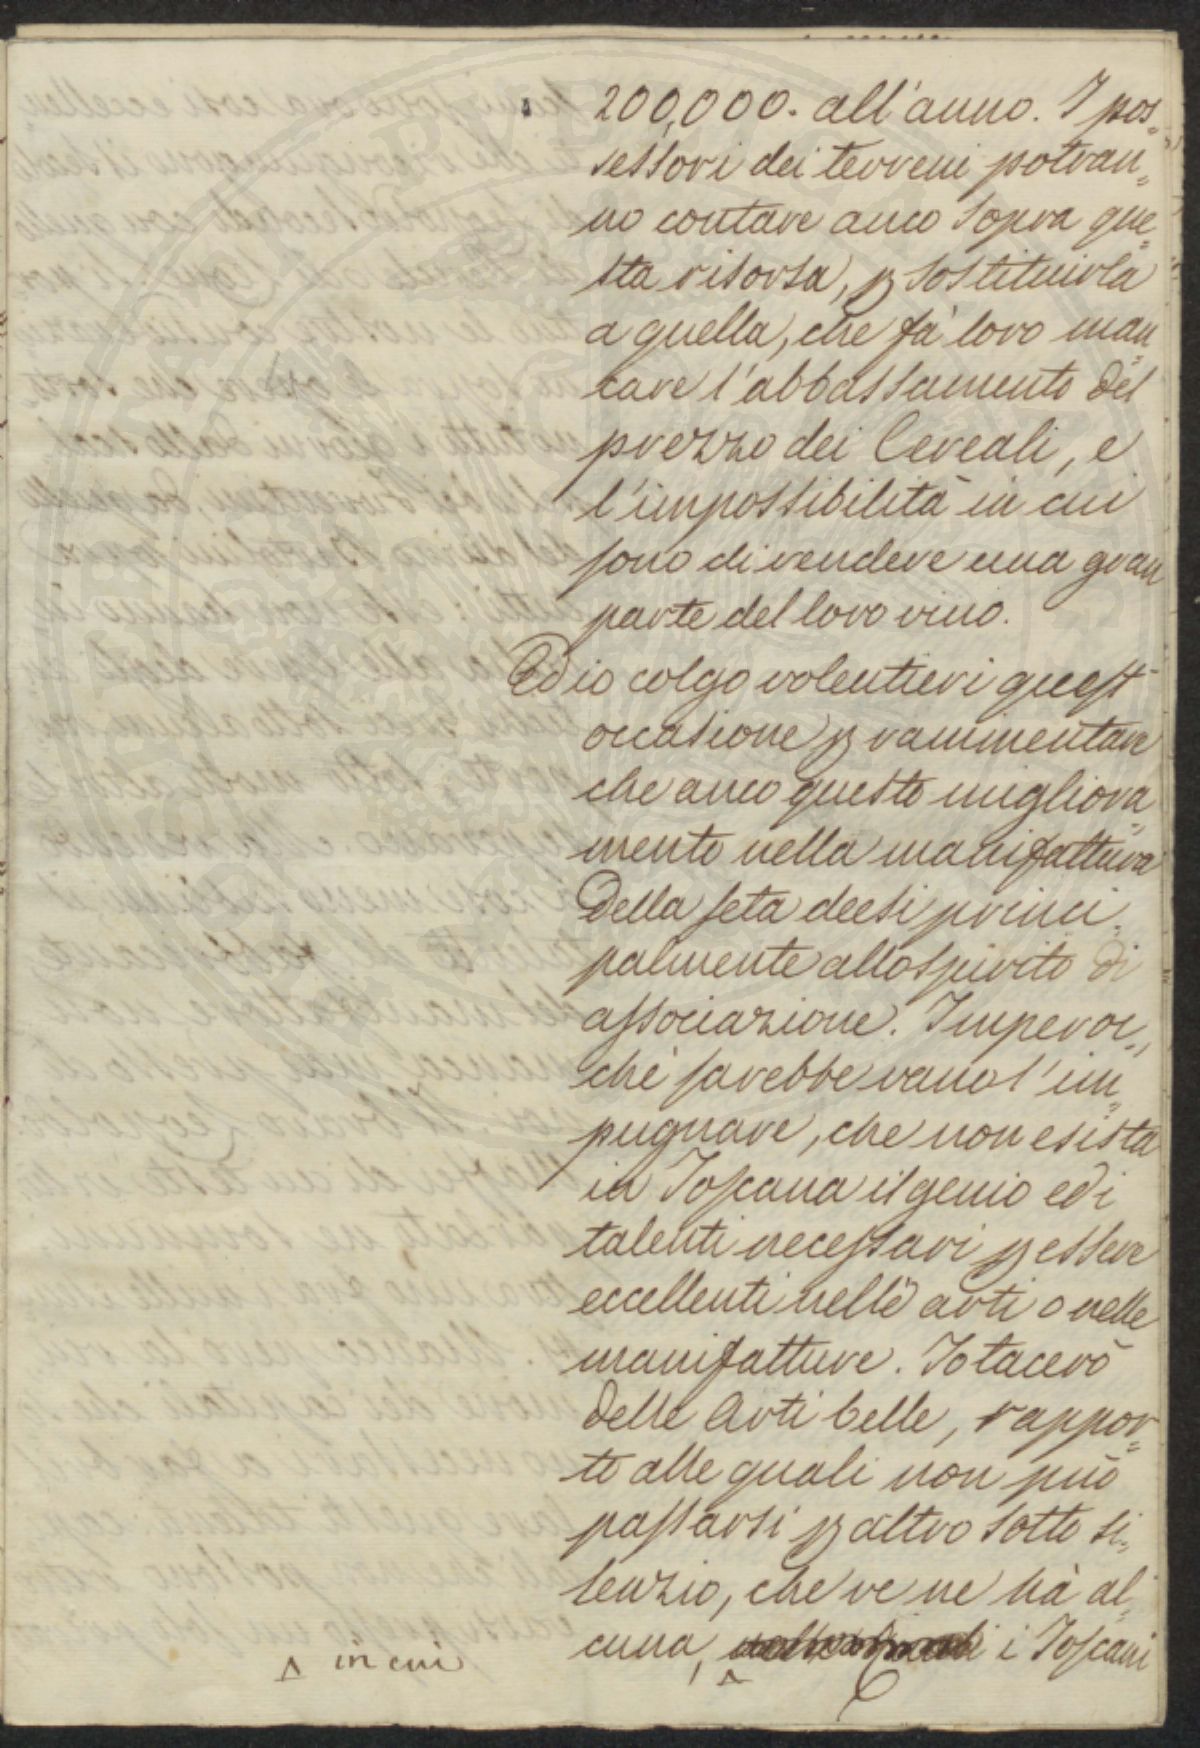 200,000. all'anno. I pos=
sessori dei terreni potran=
no contare anco sopra que=
sta risorsa, p sostituirla
a quella, che fà loro man=
care l'abbassamento del
prezzo dei Cereali, e
l'impossibilità in cui
sono di vendere una gran
parte del loro vino.
Ed io colgo volentieri quest'
occasione p rammentare
che anco questo migliora=
mento nella manifattura
della seta deesi princi=
palmente allo spirito di
associazione. Imperoc=
chè sarebbe vano l'im=
pugnare, che non esista
in Toscana il genio ed i
talenti necessari p essere
eccellenti nelle arti o nelle
manifatture. Io tacerò
delle Arti belle, rappor=
to alle quali non può
passarsi p altro sotto si=
lenzio, che ve ne hà al=
cuna, ^ i Toscani
^ in cui